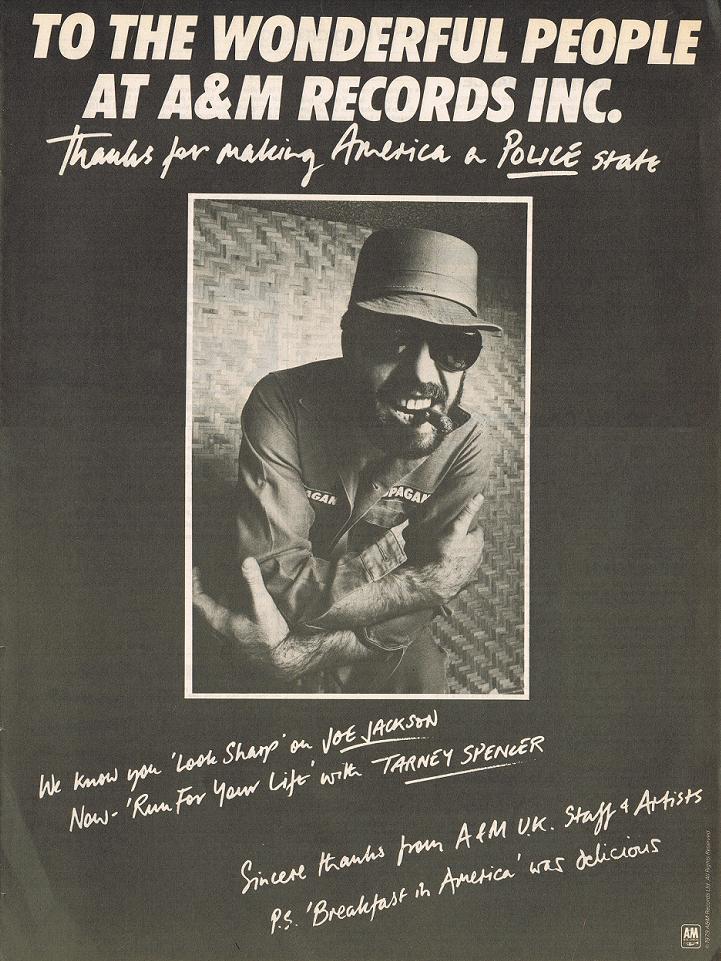 TO THE WONDERFUL PEOPLE
AT A&M RECORDS INC.
Thanks for making America a POLICE state
PAGAN
OPAGAN
We know you 'Look Sharp' on JOE JACKSON
Now- 'Run For Your Life' with TARNEY SPENCER
Sincere thanks from A&M UK. Staff & Artists
P.S. 'Breakfast in America' was delicious
AM
© 1979 A&M Records Ltd. All Rights Reserved